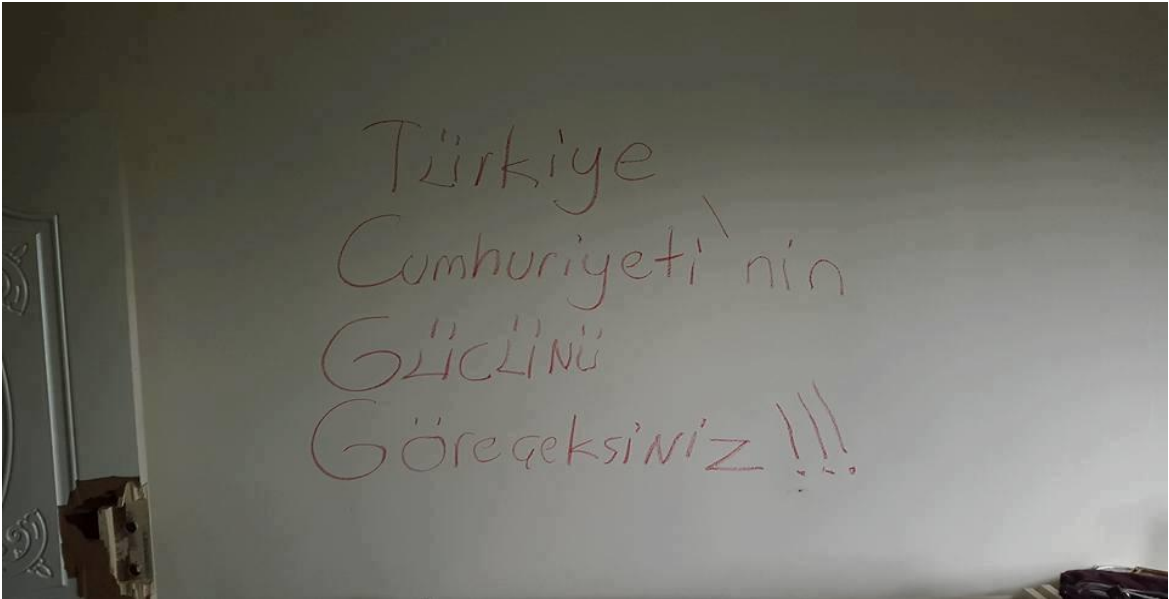 Türkiye
Cumhuriyeti'nin
Gücünü
Göreçeksiniz!!!